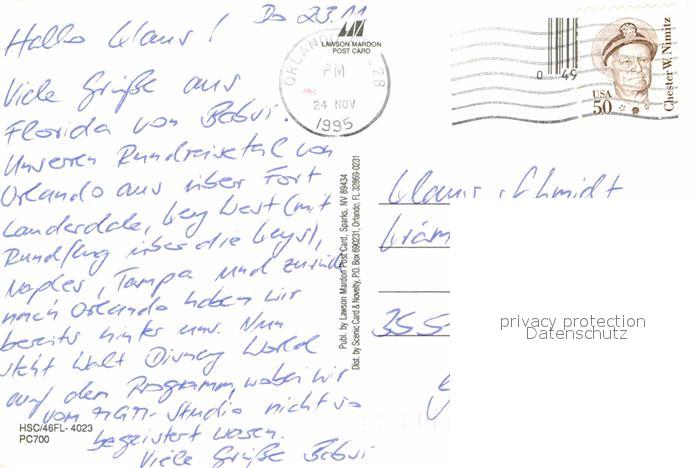 Do 23.11
Hallo Klaus!
Viele Grüße aus
Florida von Babsi.
Unseren Rundreiseteil von
Orlando aus über Fort
Lauderdale, Key West (mit
Rundflug über die Keys),
Naples, Tampa und zurück
nach Orlando haben wir
bereits hinter uns. Nun
steht Walt Disney World
auf dem Programm, wobei wir
vom MGM-Studio nicht so
begeistert waren.
Viele Grüße Babsi
HSC/46FL-4023
PC700
LAWSON MARDON
POST CARD
ORLANDO 328
PM
24 NOV
1995
Publ. by Lawson Mardon Post Card, Sparks, NV 89434
Dist. by Scenic Card & Novelty, P.O. Box 690231, Orlando, FL 32869-0231
0 49
USA
50
Chester W. Nimitz
Klaus Schmidt
355
privacy protection
Datenschutz